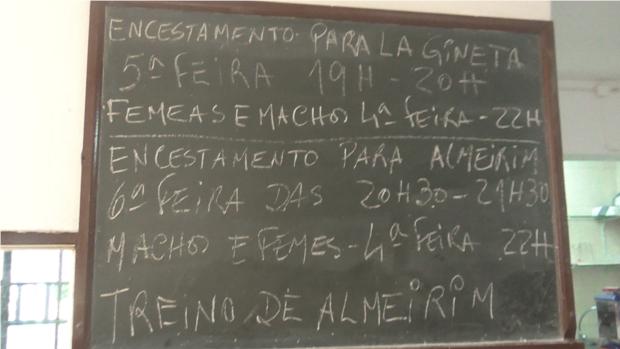 ENCESTAMENTO PARA LA GINETA
5ª FEIRA 19H - 20H
FEMEAS E MACHOS 4ª FEIRA - 22H
ENCESTAMENTO PARA ALMEIRIM
6ª FEIRA DAS 20H30 - 21H30
MACHOS E FEMES - 4ª FEIRA 22H
TREINO DE ALMEIRIM